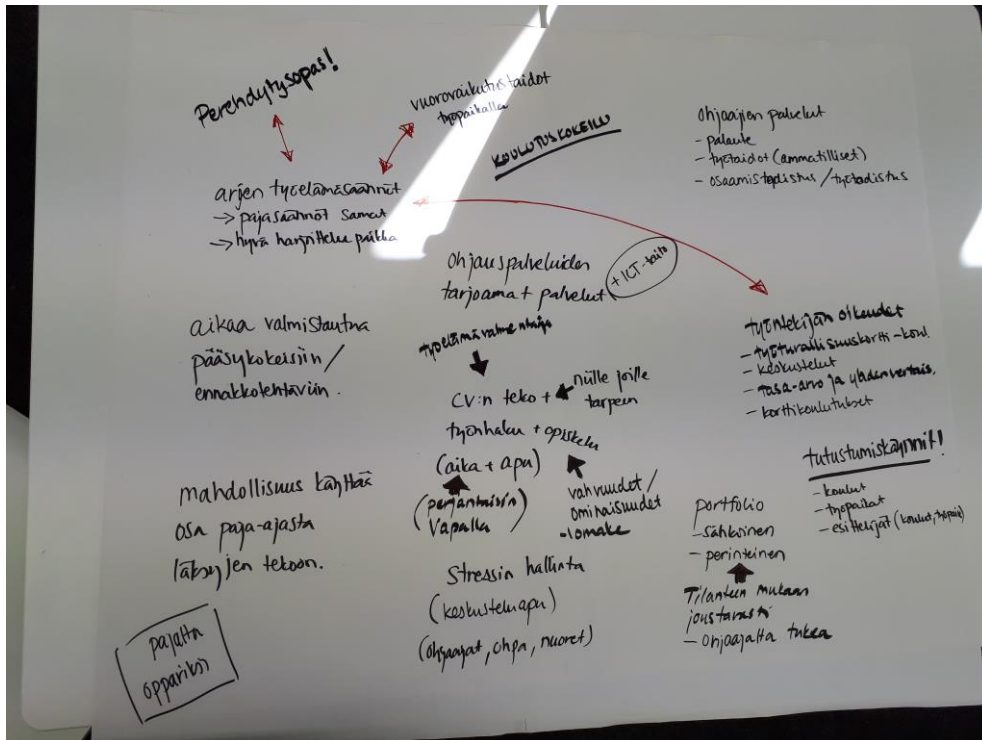 Perehdytysopas!
vuorovaikutustaidot
työpaikalla
KOULUTUSKOKEILU
ohjaajien palvelut
- palaute
- työtaidot (ammatilliset)
- osaamistodistus / työtodistus
arjen työelämäsäännöt
→ pajasäännöt samat
→ hyvä harjoittelu paikka
ohjauspalveluiden
tarjoamat palvelut
+ ICT-taito
aikaa valmistautua
pääsykokeisiin /
ennakkotehtäviin.
työelämävalmentaja
CV:n teko +
niille joille
tarpeen
työnhaku + opiskelu
(aika + apu)
(perjantaisin
Vapalla)
vahvuudet /
ominaisuudet
-lomake
työntekijän oikeudet
- työturvallisuuskortti-koul.
- keskustelut
- tasa-arvo ja yhdenvertais.
- korttikoulutukset
tutustumiskäynnit!
- koulut
- työpaikat
- esittelijät (koulut, työpaik)
mahdollisuus käyttää
osa paja-ajasta
läksyjen tekoon.
Stressin hallinta
(keskusteluapu)
(ohjaajat, ohpa, nuoret)
portfolio
- sähköinen
- perinteinen
Tilanteen mukaan
joustavasti
- ohjaajalta tukea
pajalta
oppariksi